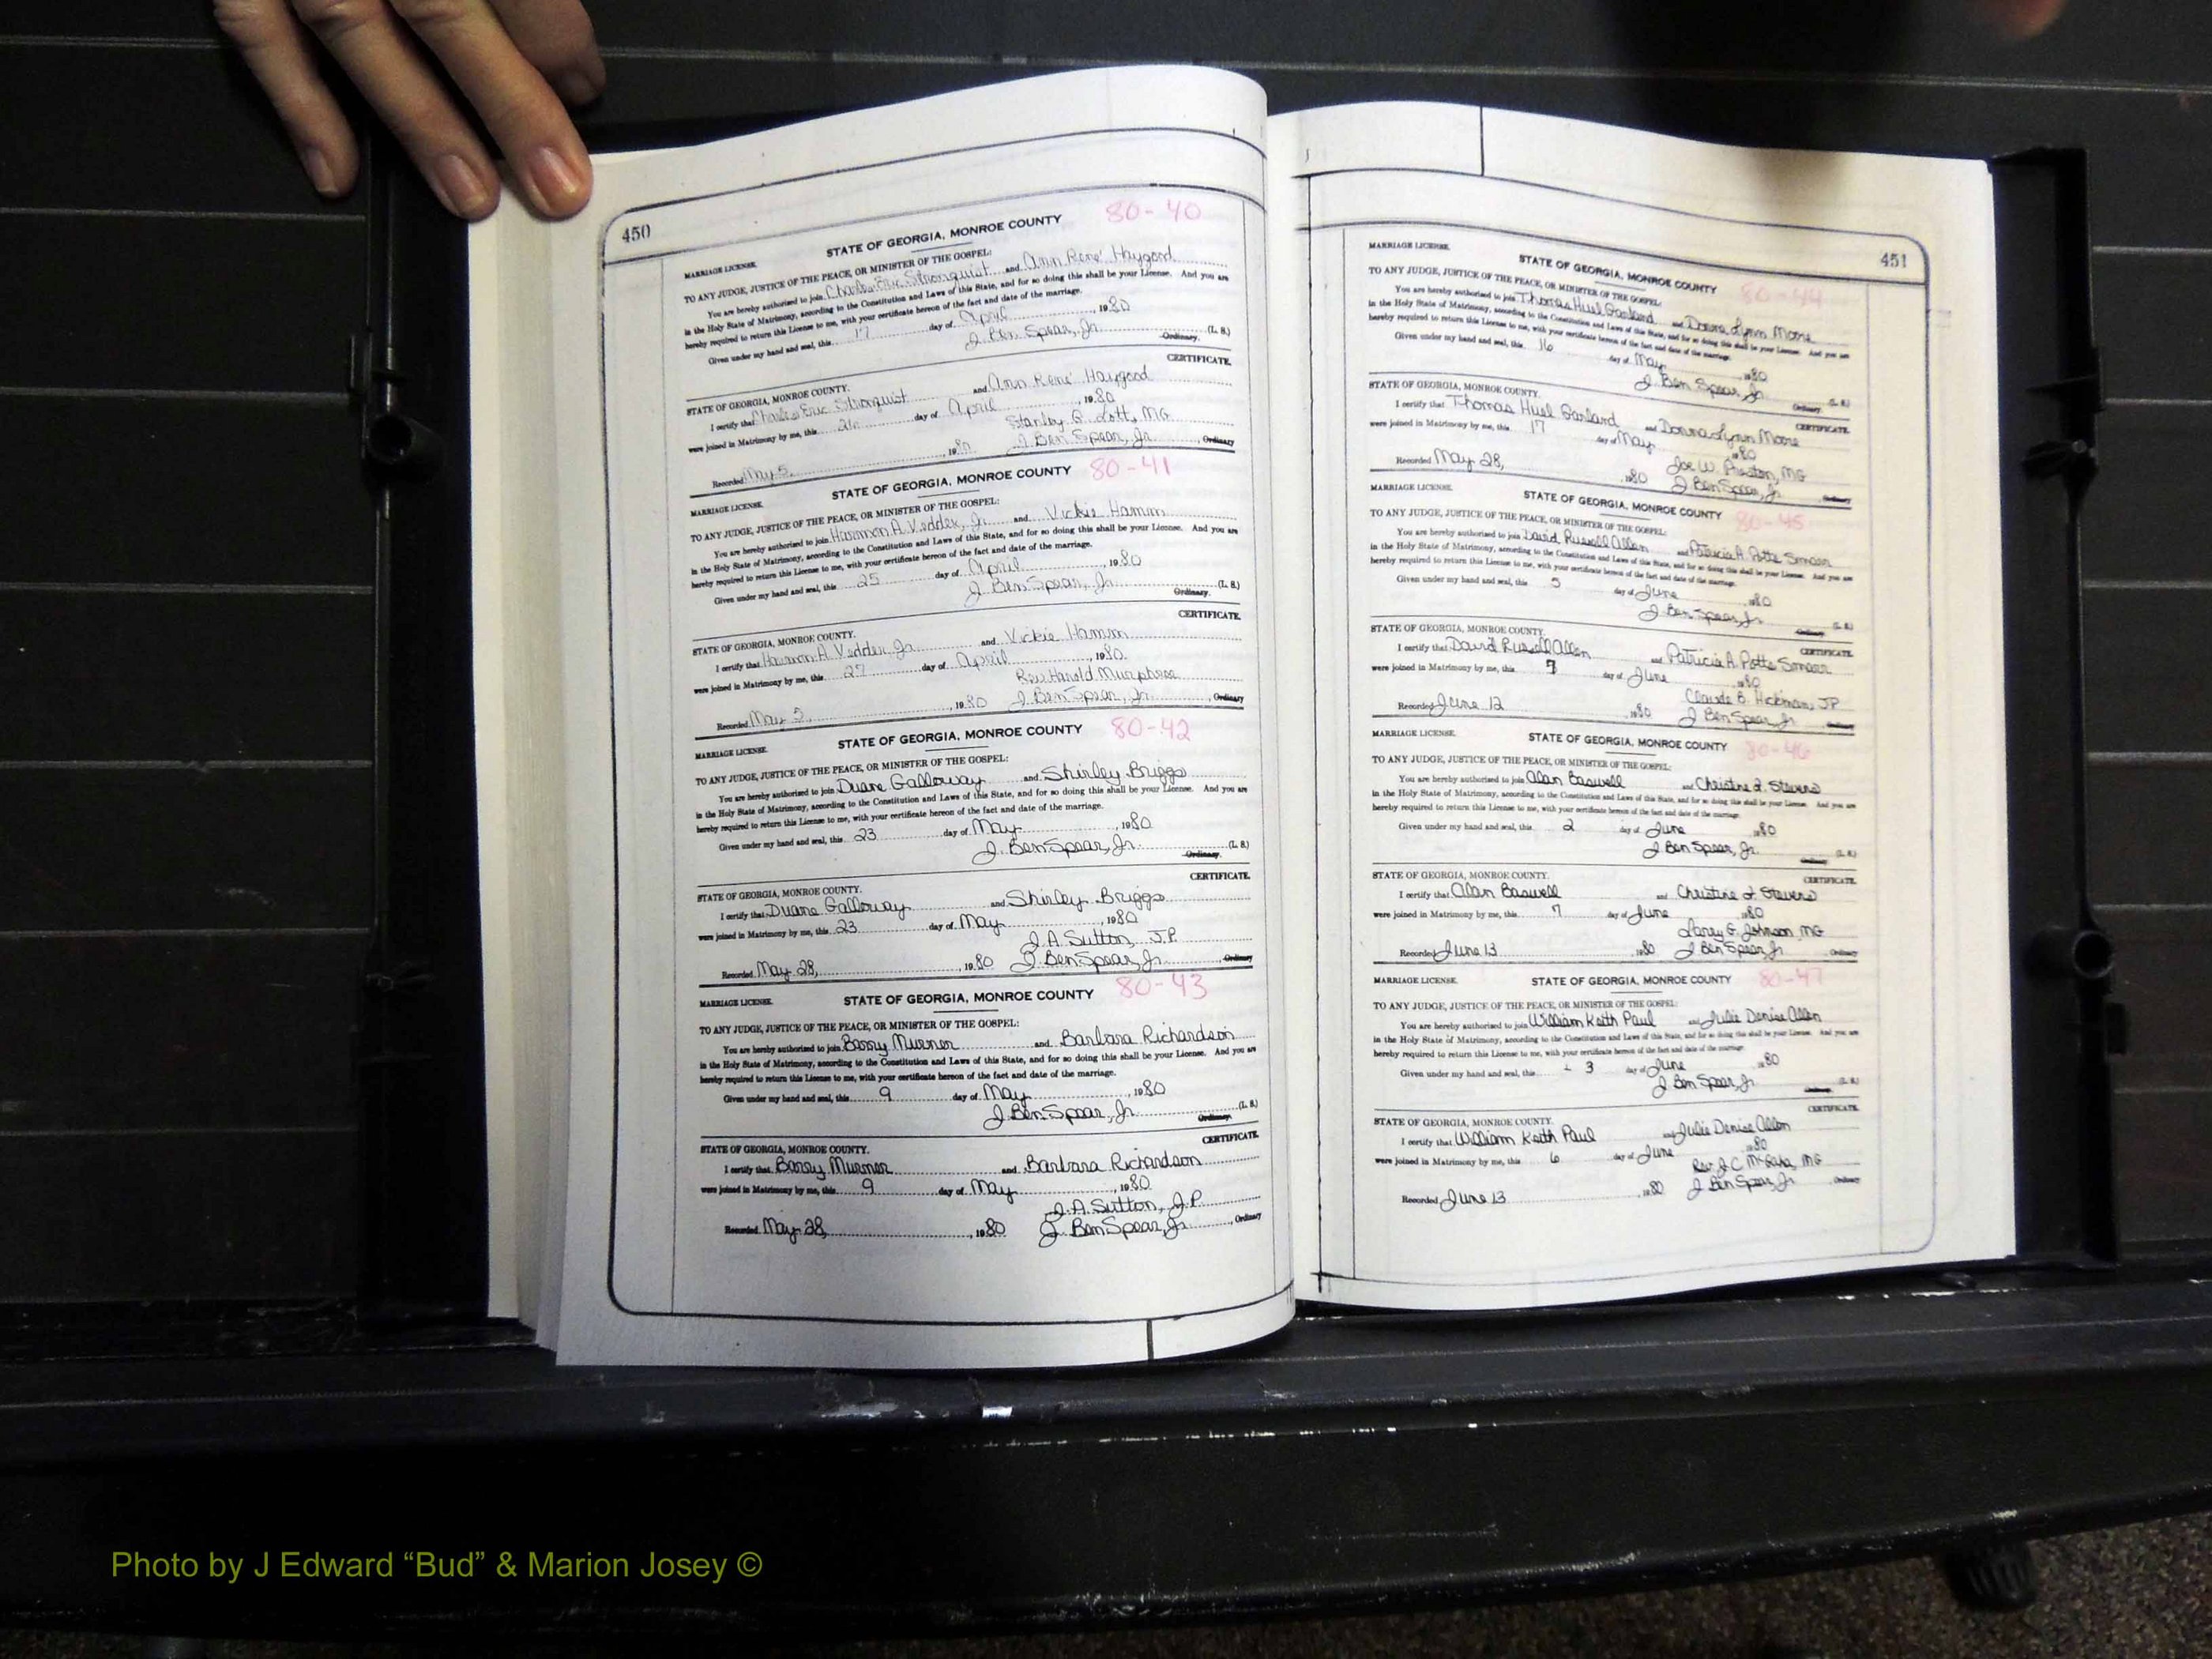 450
80-40
STATE OF GEORGIA, MONROE COUNTY
MARRIAGE LICENSE.
TO ANY JUDGE, JUSTICE OF THE PEACE, OR MINISTER OF THE GOSPEL:
You are hereby authorized to join Charles Eric Stronquist and Ann Rene' Haygood
in the Holy State of Matrimony, according to the Constitution and Laws of this State, and for so doing this shall be your License. And you are
hereby required to return this License to me, with your certificate hereon of the fact and date of the marriage.
Given under my hand and seal, this 17 day of April, 1980
J. Ben Spear, Jr. (L. S.)
Ordinary.
CERTIFICATE.
STATE OF GEORGIA, MONROE COUNTY.
I certify that Charles Eric Stronquist and Ann Rene' Haygood
were joined in Matrimony by me, this day of April, 1980
Stanley G. Lott, MG
Recorded May 5, 1980 J. Ben Spear, Jr., Ordinary
80-41
STATE OF GEORGIA, MONROE COUNTY
MARRIAGE LICENSE.
TO ANY JUDGE, JUSTICE OF THE PEACE, OR MINISTER OF THE GOSPEL:
You are hereby authorized to join Harmon A. Vedder, Jr. and Vickie Hamm
in the Holy State of Matrimony, according to the Constitution and Laws of this State, and for so doing this shall be your License. And you are
hereby required to return this License to me, with your certificate hereon of the fact and date of the marriage.
Given under my hand and seal, this 25 day of April, 1980
J. Ben Spear, Jr. (L. S.)
Ordinary.
CERTIFICATE.
STATE OF GEORGIA, MONROE COUNTY.
I certify that Harmon A. Vedder, Jr. and Vickie Hamm
were joined in Matrimony by me, this 27 day of April, 1980.
Rev. Harold Murphree
Recorded May 5, 1980 J. Ben Spear, Jr., Ordinary
80-42
STATE OF GEORGIA, MONROE COUNTY
MARRIAGE LICENSE.
TO ANY JUDGE, JUSTICE OF THE PEACE, OR MINISTER OF THE GOSPEL:
You are hereby authorized to join Duane Galloway and Shirley Briggs
in the Holy State of Matrimony, according to the Constitution and Laws of this State, and for so doing this shall be your License. And you are
hereby required to return this License to me, with your certificate hereon of the fact and date of the marriage.
Given under my hand and seal, this 23 day of May, 1980
J. Ben Spear, Jr. (L. S.)
Ordinary.
CERTIFICATE.
STATE OF GEORGIA, MONROE COUNTY.
I certify that Duane Galloway and Shirley Briggs
were joined in Matrimony by me, this 23 day of May, 1980
J. A. Sutton, J.P.
Recorded May 28, 1980 J. Ben Spear, Jr., Ordinary
80-43
STATE OF GEORGIA, MONROE COUNTY
MARRIAGE LICENSE.
TO ANY JUDGE, JUSTICE OF THE PEACE, OR MINISTER OF THE GOSPEL:
You are hereby authorized to join Barry Murner and Barbara Richardson
in the Holy State of Matrimony, according to the Constitution and Laws of this State, and for so doing this shall be your License. And you are
hereby required to return this License to me, with your certificate hereon of the fact and date of the marriage.
Given under my hand and seal, this 9 day of May, 1980
J. Ben Spear, Jr. (L. S.)
Ordinary.
CERTIFICATE.
STATE OF GEORGIA, MONROE COUNTY.
I certify that Barry Murner and Barbara Richardson
were joined in Matrimony by me, this 9 day of May, 1980
J. A. Sutton, J.P.
Recorded May 28, 1980 J. Ben Spear, Jr., Ordinary
451
MARRIAGE LICENSE.
STATE OF GEORGIA, MONROE COUNTY 80-44
TO ANY JUDGE, JUSTICE OF THE PEACE, OR MINISTER OF THE GOSPEL:
You are hereby authorized to join Thomas Huel Garland and Donna Lynn Moore
in the Holy State of Matrimony, according to the Constitution and Laws of this State, and for so doing this shall be your License. And you are
hereby required to return this License to me, with your certificate hereon of the fact and date of the marriage.
Given under my hand and seal, this 16 day of May, 1980
J. Ben Spear, Jr. (L. S.)
Ordinary.
CERTIFICATE.
STATE OF GEORGIA, MONROE COUNTY.
I certify that Thomas Huel Garland and Donna Lynn Moore
were joined in Matrimony by me, this 17 day of May, 1980
Joe W. Preston, MG
Recorded May 28, 1980 J. Ben Spear, Jr. Ordinary
MARRIAGE LICENSE.
STATE OF GEORGIA, MONROE COUNTY 80-45
TO ANY JUDGE, JUSTICE OF THE PEACE, OR MINISTER OF THE GOSPEL:
You are hereby authorized to join David Russell Allen and Patricia A. Potts Smarr
in the Holy State of Matrimony, according to the Constitution and Laws of this State, and for so doing this shall be your License. And you are
hereby required to return this License to me, with your certificate hereon of the fact and date of the marriage.
Given under my hand and seal, this 5 day of June, 1980
J. Ben Spear, Jr. (L. S.)
Ordinary.
CERTIFICATE.
STATE OF GEORGIA, MONROE COUNTY.
I certify that David Russell Allen and Patricia A. Potts Smarr
were joined in Matrimony by me, this 7 day of June, 1980
Claude B. Hickman, JP
Recorded June 12, 1980 J. Ben Spear, Jr. Ordinary
MARRIAGE LICENSE.
STATE OF GEORGIA, MONROE COUNTY 80-46
TO ANY JUDGE, JUSTICE OF THE PEACE, OR MINISTER OF THE GOSPEL:
You are hereby authorized to join Alan Baswell and Christine L. Stevens
in the Holy State of Matrimony, according to the Constitution and Laws of this State, and for so doing this shall be your License. And you are
hereby required to return this License to me, with your certificate hereon of the fact and date of the marriage.
Given under my hand and seal, this 2 day of June 1980
J. Ben Spear, Jr. (L. S.)
Ordinary.
CERTIFICATE.
STATE OF GEORGIA, MONROE COUNTY.
I certify that Alan Baswell and Christine L. Stevens
were joined in Matrimony by me, this 7 day of June 1980
Larry G. Johnson, MG
Recorded June 13, 1980 J. Ben Spear, Jr. Ordinary
MARRIAGE LICENSE.
STATE OF GEORGIA, MONROE COUNTY 80-47
TO ANY JUDGE, JUSTICE OF THE PEACE, OR MINISTER OF THE GOSPEL:
You are hereby authorized to join William Keith Paul and Julie Denise Allen
in the Holy State of Matrimony, according to the Constitution and Laws of this State, and for so doing this shall be your License. And you are
hereby required to return this License to me, with your certificate hereon of the fact and date of the marriage.
Given under my hand and seal, this 3 day of June 1980
J. Ben Spear, Jr. (L. S.)
Ordinary.
CERTIFICATE.
STATE OF GEORGIA, MONROE COUNTY.
I certify that William Keith Paul and Julie Denise Allen
were joined in Matrimony by me, this 6 day of June 1980
Rev. J. C. MG
Recorded June 13, 1980 J. Ben Spear, Jr. Ordinary
Photo by J Edward “Bud” & Marion Josey ©